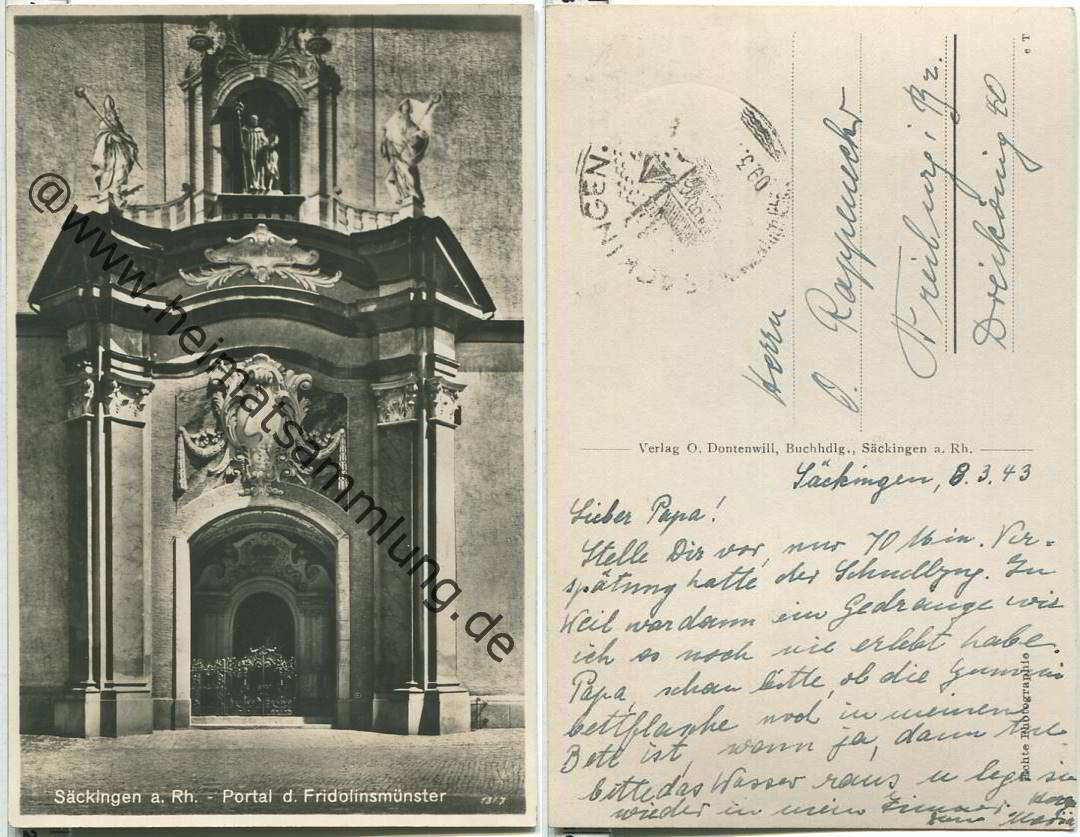 @www.heimatsammlung.de
Säckingen a. Rh. - Portal d. Fridolinsmünster
SÄCKINGEN.
Herrn
O. Rappenecker
Freiburg i. Brg.
Dreikönig 40
Verlag O. Dontenwill, Buchhdlg., Säckingen a. Rh.
Echte Photographie
Säckingen, 8.3.43
Lieber Papa!
Stelle Dir vor, nur 70 Min. Ver-
spätung hatte der Schnellzug. In
Weil war dann ein Gedränge wie
ich es noch nie erlebt habe.
Papa, schau bitte, ob die Gummi
bettflasche noch in meinem
Bett ist, wenn ja, dann tue
bitte das Wasser raus u lege sie
wieder in mein Zimmer
Maria